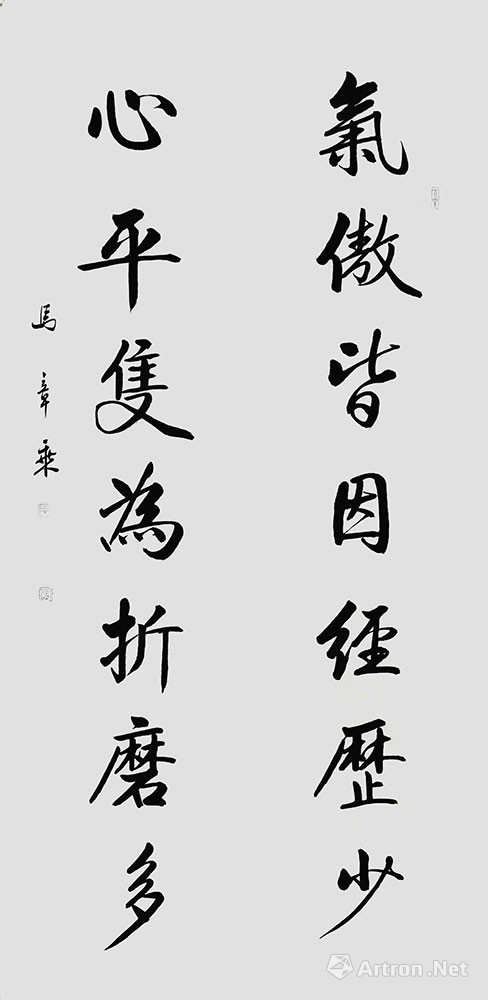 氣傲皆因經歷少
心平隻為折磨多
馬章乘
Artron.Net